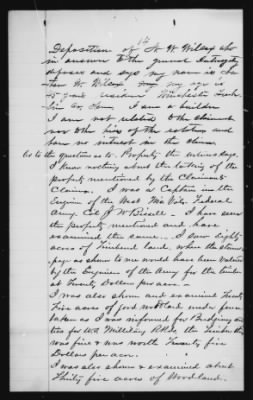 Deposition of W. W. Wilcox who
in answer to the general Interrogatory
deposes and says my name is
W. Wilcox my age is
55 years residence Winchester Frank-
lin Co. Tenn. I am a builder
I am not related to the claimant
nor to the heirs of the
has no interest in the claim.
As to the question as to Property the witness says.
I know nothing about the taking of the
property mentioned by the Claimants
Claims. I was a Captain in the
Engineer of the West Mo Vols. Federal
Army Col J. W. Bissell - I have seen
the property mentioned and have
examined the same. I saw Eighty
acres of Timbered land, when the stumps
as shown to me would have been valued
by the Engineer of the Army for the timber
at Twenty Dollars per acre. -
I was also shown and examined Twenty
Five acres of good woodland under fence
taken as I was informed for Bridging and
ties for U.S. Military R.R. the timber
was fine & was worth Twenty five
Dollars per acre.
I was also shown & examined about
Thirty five acres of Woodland.